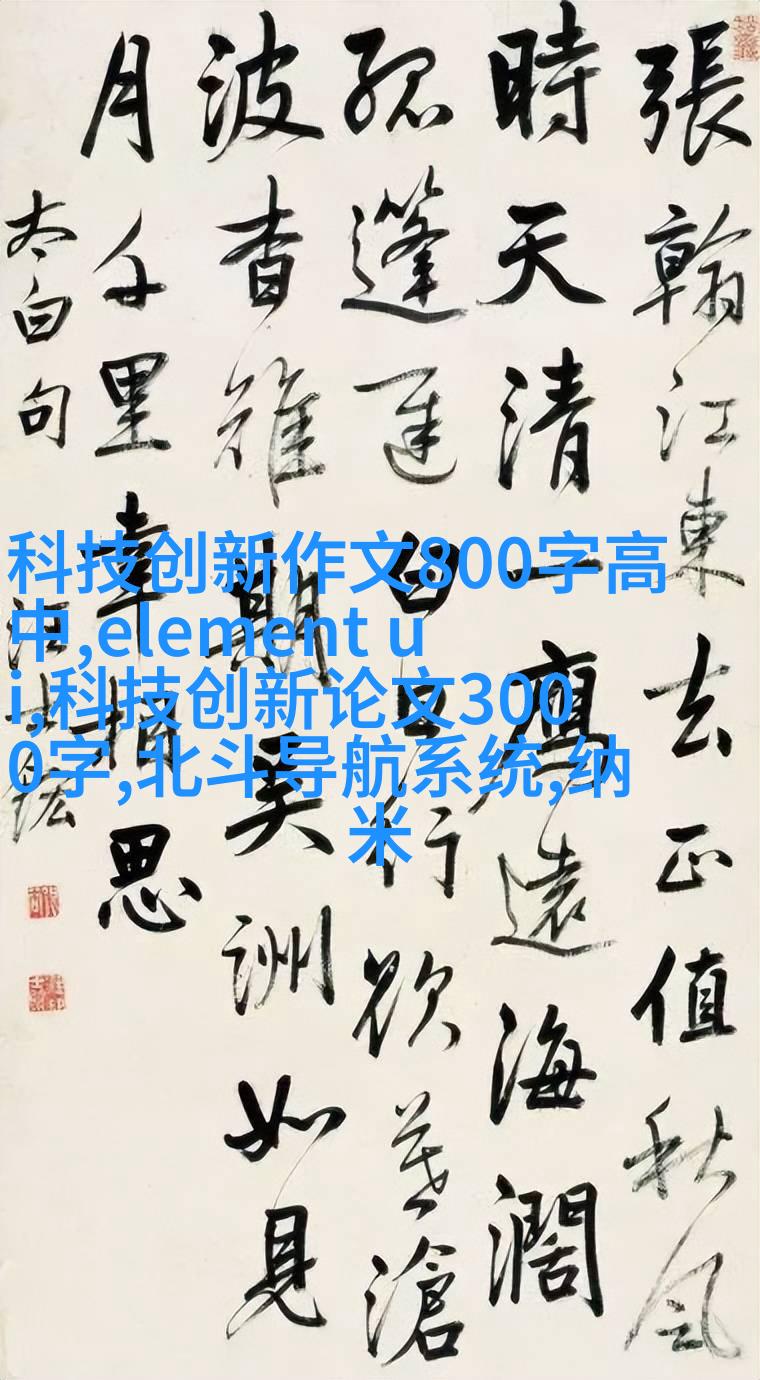 張翰江東去正值秋風
時天清一鴈遠海濶
孤篷遲白日行欲暮滄
波杳難期吳洲如見
月千里幸相思
太白句 汪士鋐
科技创新作文800字高
中,element u
i,科技创新论文300
0字,北斗导航系统,纳
米